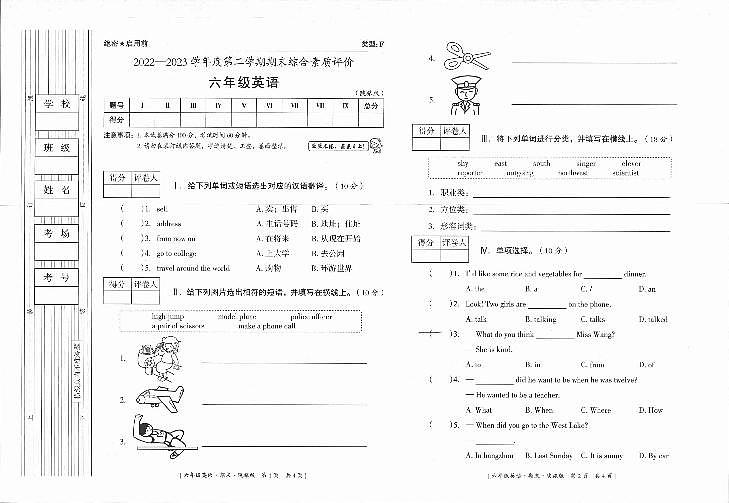 绝密★启用前
类型:F
2022—2023学年度第二学期期末综合素质评价
六年级英语
(陕旅版)
题号 I II III IV V VI VII VIII IX 总分
得分
注意事项:1.本试卷满分100分,考试时间60分钟。
学校
班级
姓名
考场
考号
得分 评卷人
I.给下列单词或短语选出对应的汉语翻译。(10分)
( )1. sell A.卖;出售 B.买
( )2. address A.电话号码 B.地址;住址
( )3. from now on A.在将来 B.从现在开始
( )4. go to college A.上大学 B.去公园
( )5. travel around the world A.购物 B.环游世界
得分 评卷人
II.给下列图片选出相符的短语,并填写在横线上。(10分)
high jump model plane police officer
a pair of scissors make a phone call
1.
2.
3.
[六年级英语·期末·陕旅版 第1页 共4页]
4.
5.
得分 评卷人
III.将下列单词进行分类,并填写在横线上。(18分)
shy east south singer clever
reporter outgoing northwest scientist
1. 职业类:
2. 方位类:
3. 形容词类:
得分 评卷人
IV.单项选择。(10分)
( )1. I'd like some rice and vegetables for ________ dinner.
A. the B. a C. / D. an
( )2. Look! Two girls are ________ to the phone.
A. talk B. talking C. talks D. talked
( )3. What do you think ________ Miss Wang?
She is kind.
A. to B. in C. from D. of
( )4. — ________ did he want to be when he was twelve?
— He wanted to be a teacher.
A. What B. When C. Where D. How
( )5. — When did you go to the West Lake?
________.
A. In hangzhou B. Last Sunday C. It is sunny D. By car
[六年级英语·期末·陕旅版 第2页 共4页]